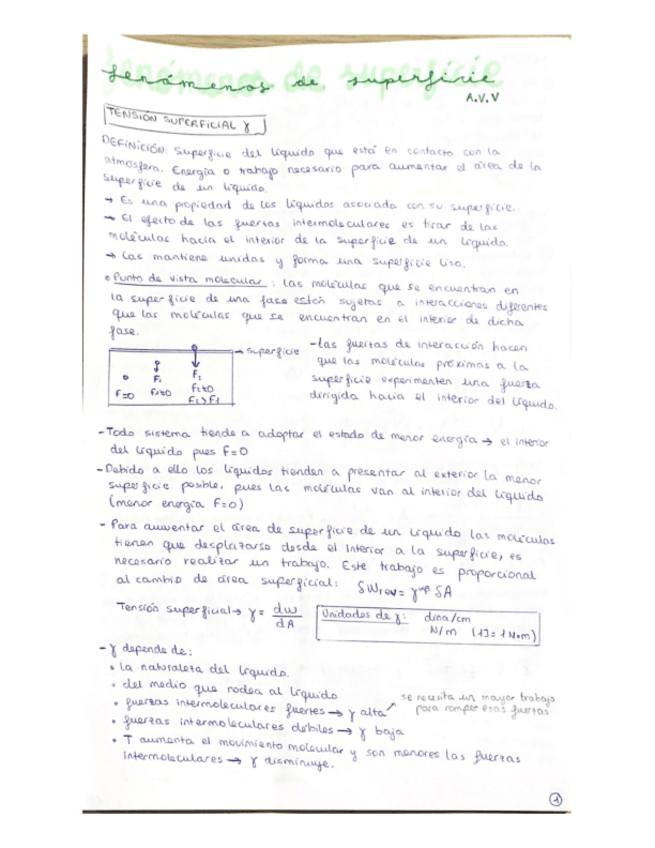 fenómenos de superficie
A.V.V
TENSIÓN SUPERFICIAL γ
DEFINICIÓN: Superficie del líquido que está en contacto con la
atmósfera. Energía o trabajo necesario para aumentar el área de la
superficie de un líquido.
→ Es una propiedad de los líquidos asociada con su superficie.
→ El efecto de las fuerzas intermoleculares es tirar de las
moléculas hacia el interior de la superficie de un líquido.
→ Las mantiene unidas y forma una superficie lisa.
• Punto de vista molecular: las moléculas que se encuentran en
la superficie de una fase están sujetas a interacciones diferentes
que las moléculas que se encuentran en el interior de dicha
fase.
→ superficie
F=0
F₁
F₁≠0
F₂
F₂≠0
F₂>F₁
- las fuerzas de interacción hacen
que las moléculas próximas a la
superficie experimenten una fuerza
dirigida hacia el interior del líquido.
- Todo sistema tiende a adoptar el estado de menor energía → el interior
del líquido pues F=0
- Debido a ello los líquidos tienden a presentar al exterior la menor
superficie posible, pues las moléculas van al interior del líquido
(menor energía F=0)
- Para aumentar el área de superficie de un líquido las moléculas
tienen que desplazarse desde el interior a la superficie, es
necesario realizar un trabajo. Este trabajo es proporcional
al cambio de área superficial: δWrev = γ δA
Tensión superficial → γ = dw/dA
Unidades de γ: dina/cm
N/m (1J = 1N·m)
- γ depende de:
• la naturaleza del líquido.
• del medio que rodea al líquido
• fuerzas intermoleculares fuertes → γ alta
se necesita un mayor trabajo
para romper esas fuerzas
• fuerzas intermoleculares débiles → γ baja
• T aumenta el movimiento molecular y son menores las fuerzas
intermoleculares → γ disminuye.
1